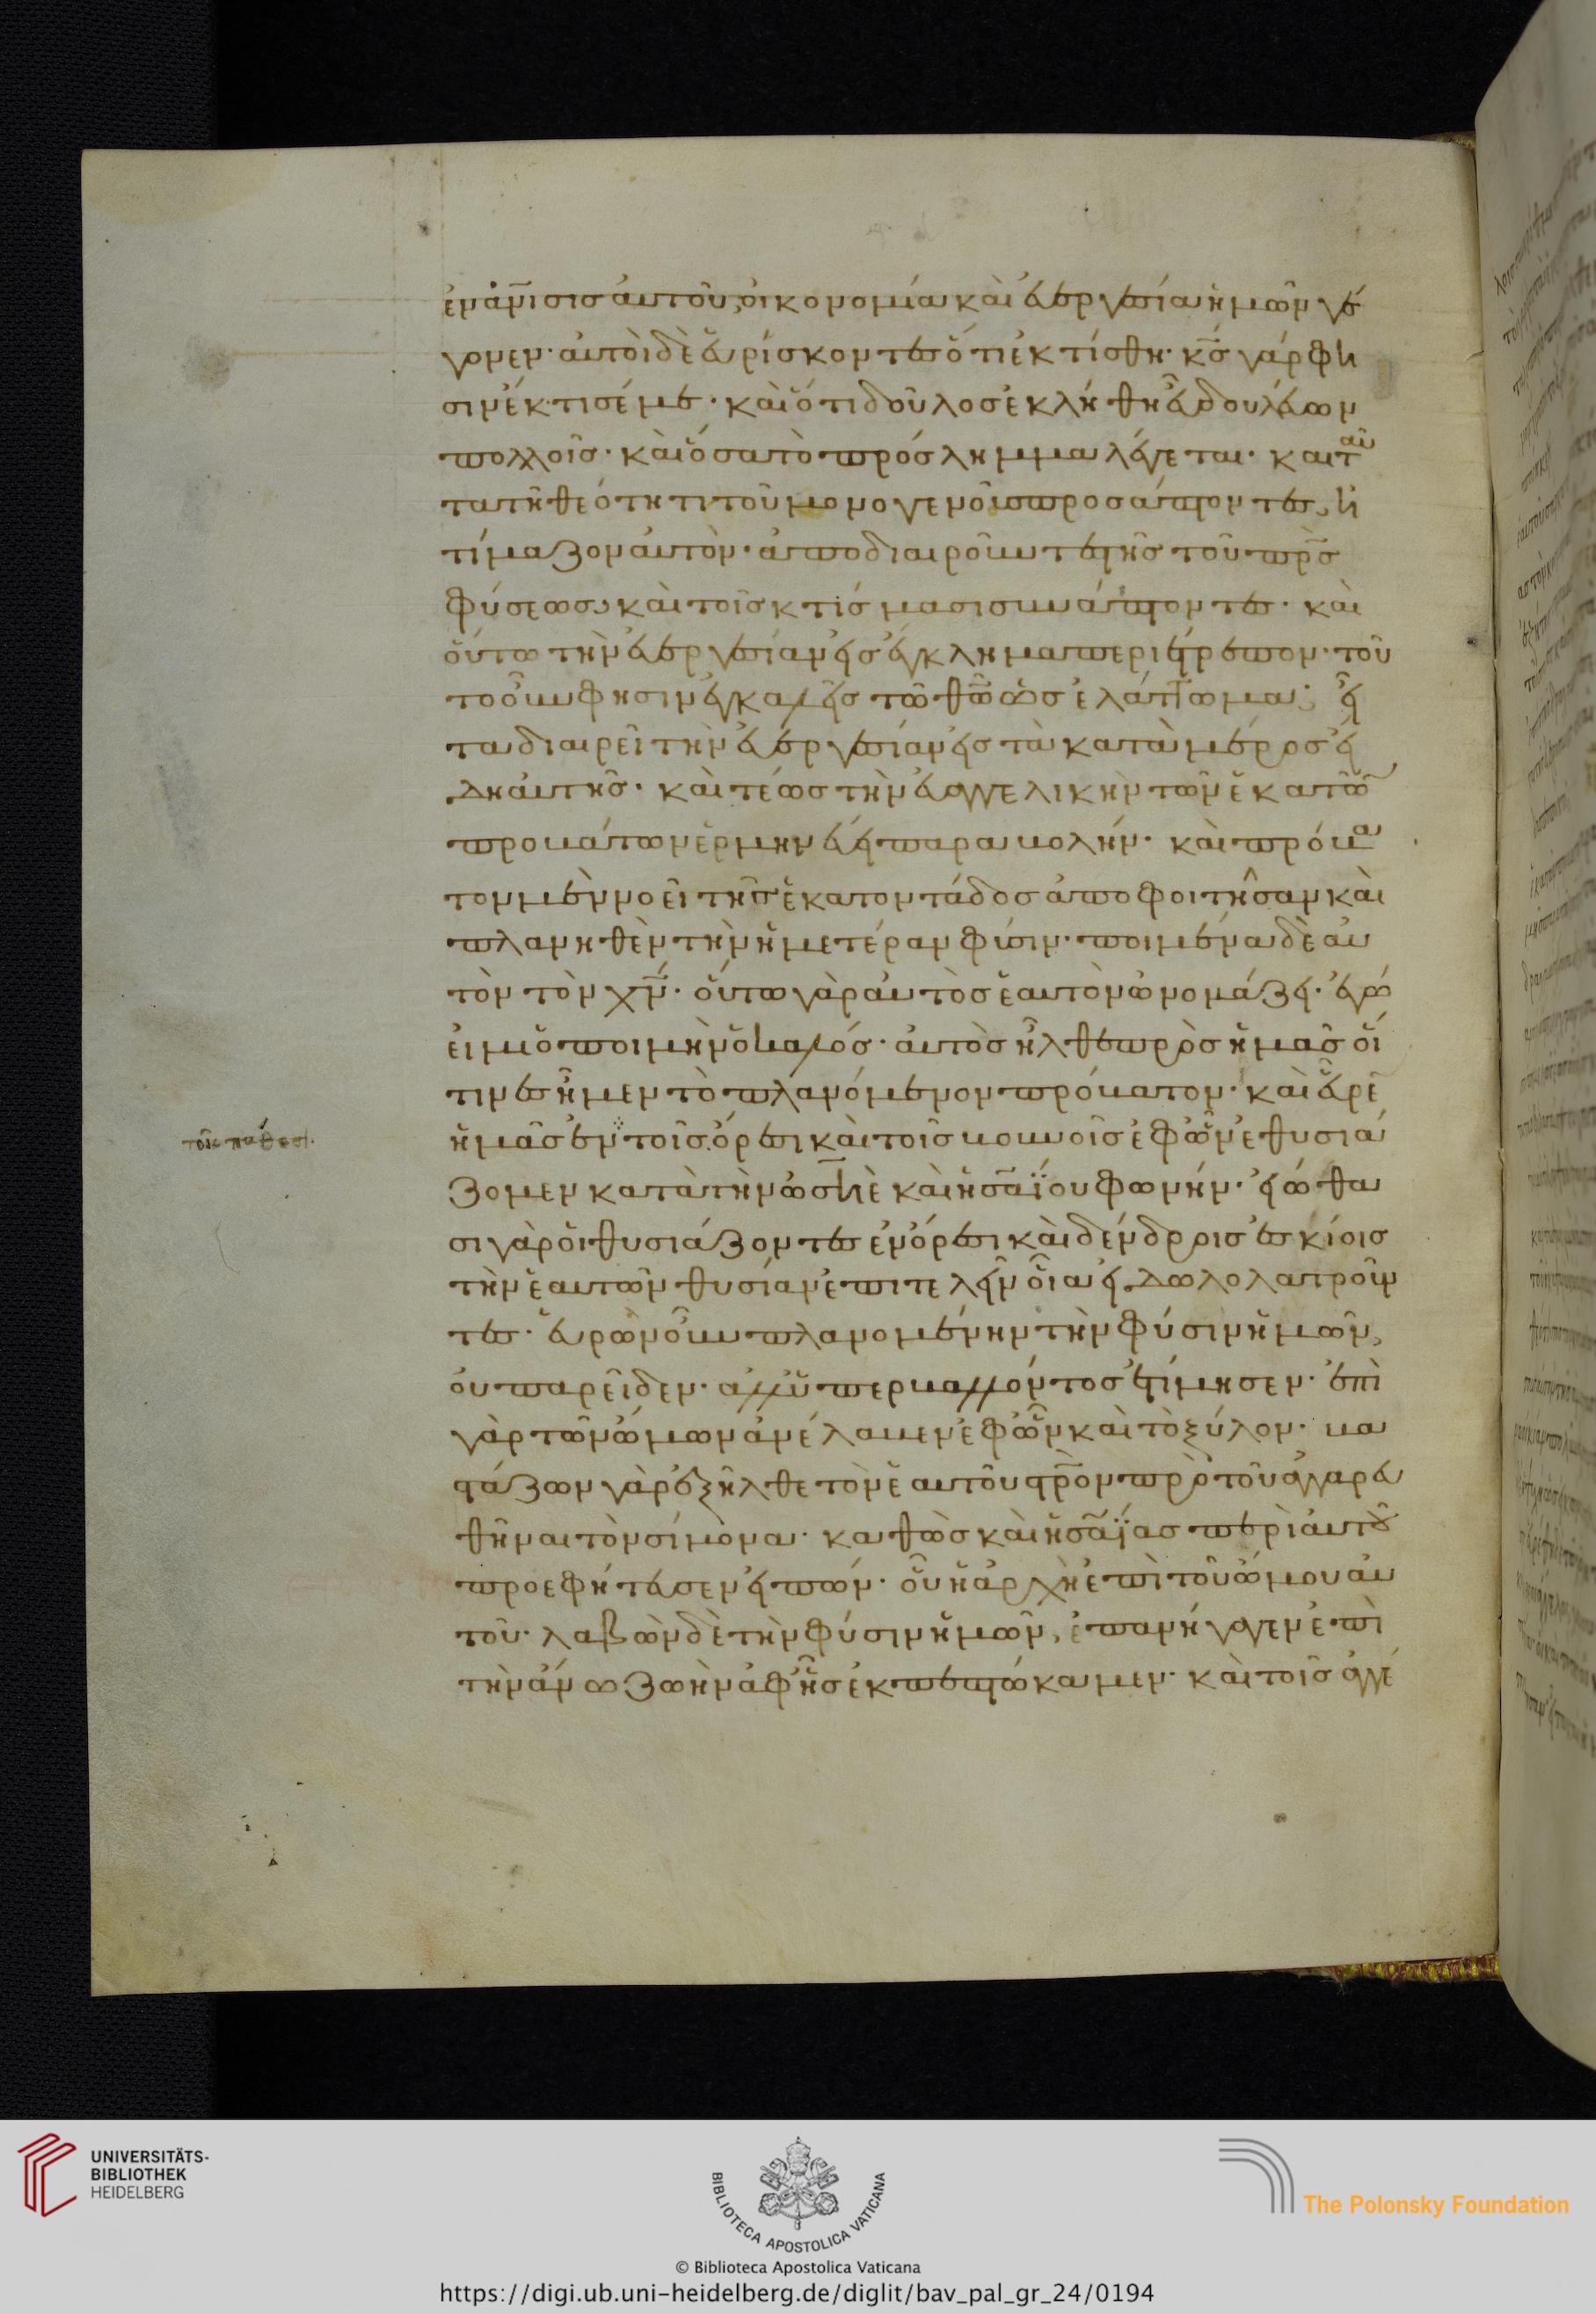 ἐνἀν̅ισισ ἀυτοῦ, ὀικονομία καὶ ἐυεργεσία ἡμῶν γέ
γονεν· ἀυτοὶ δὲ ἑυρίσκοντες ὅτι ἐκτίσθη· κ̅ς γάρ φη
σιν ἔκτισέ με· καὶ ὅτι δοῦλος ἐκλήθη ἐυδουλεύων
πολλοῖς· καὶ ὅσα τὸ πρόσλημμα λέγεται· καὶ ταῦ
τα τῆ θεότητι τοῦ μονογενοῦς προσάπτοντες, ἠ
τίμαζον ἀυτὸν· ἀποδιαιροῦντες τῆς τοῦ π̅ρς
φύσεως, καὶ τοῖς κτίσμασι συνάπτοντες· καὶ
ὅυτω τὴν ἐυεργεσίαν εἰς ἔγκλημα περιέτρεπον· τοῦ
το οὖν φησιν ἐγκαλεῖς τῶ θ̅ω ὡς ἐλάττωμα; εἶ
τα διαιρεῖ τὴν ἐυεργεσίαν εἰς τὰ κατὰ μέρος εἴ
δη ἀυτῆς· καὶ τέως τὴν ἐυαγγελικὴν τῶν ἑκατὸν
προβάτων ἑρμηνεύει παραβολήν· καὶ πρόβα
τον μὲν νοεῖ τῆς ἑκατοντάδος ἀποφοιτῆσαν καὶ
πλανηθὲν τὴν ἡμετέραν φύσιν· ποιμένα δὲ ἀυ
τὸν τὸν χ̅ν· ὅυτω γὰρ ἀυτὸς ἑαυτὸν ὠνομάζει· ἐγώ
εἰμι ὁ ποιμὴν ὁ καλός· ἀυτὸς ἦλθε πρὸς ἡμᾶς ὅι
τινες ἦμεν τὸ πλανόμενον πρόβατον· καὶ ἕυρε
ἡμᾶς ἐν τοῖς ὄρεσι καὶ τοῖς βουνοῖς ἐφ᾽ ὧν ἐθυσιά
ζομεν κατὰ τὴν ὠσηὲ καὶ ἡσαΐου φωνήν· εἰώθα
σι γὰρ ὁι θυσιάζοντες ἐν ὄρεσι καὶ δένδροις ἐυσκίοις
τὴν ἑαυτῶν θυσίαν ἐπιτελεῖν ὁῖα εἰδωλολατροῦν
τες· ἑυρὼν οὖν πλανομένην τὴν φύσιν ἡμῶν,
ὀυ παρεῖδεν· ἀλλ᾽ ὑπερβαλλόντως ἐτίμησεν· ἐπὶ
γὰρ τῶν ὤμων ἀνέλαβεν ἐφ᾽ ὧν καὶ τὸ ξύλον· βα
στάζων γὰρ ἐξῆλθε τὸν ἑαυτοῦ στ̅ρον πρὸ τοῦ ἀγγαρευ
θῆναι τὸν σίμωνα· καθὼς καὶ ἡσαΐας περὶ ἀυτοῦ
προεφήτευσεν εἰπών· οὗ ἡ ἀρχὴ ἐπὶ τοῦ ὤμου ἀυ
τοῦ· λαβὼν δὲ τὴν φύσιν ἡμῶν, ἐπανήγαγεν ἐπὶ
τὴν ἄνω ζωὴν ἀφ᾽ ἧς ἐκπεπτώκαμεν· καὶ τοῖς ἀγγέ
τοῖς πάθεσι.
UNIVERSITÄTS-
BIBLIOTHEK
HEIDELBERG
BIBLIOTECA APOSTOLICA VATICANA
© Biblioteca Apostolica Vaticana
The Polonsky Foundation
https://digi.ub.uni-heidelberg.de/diglit/bav_pal_gr_24/0194